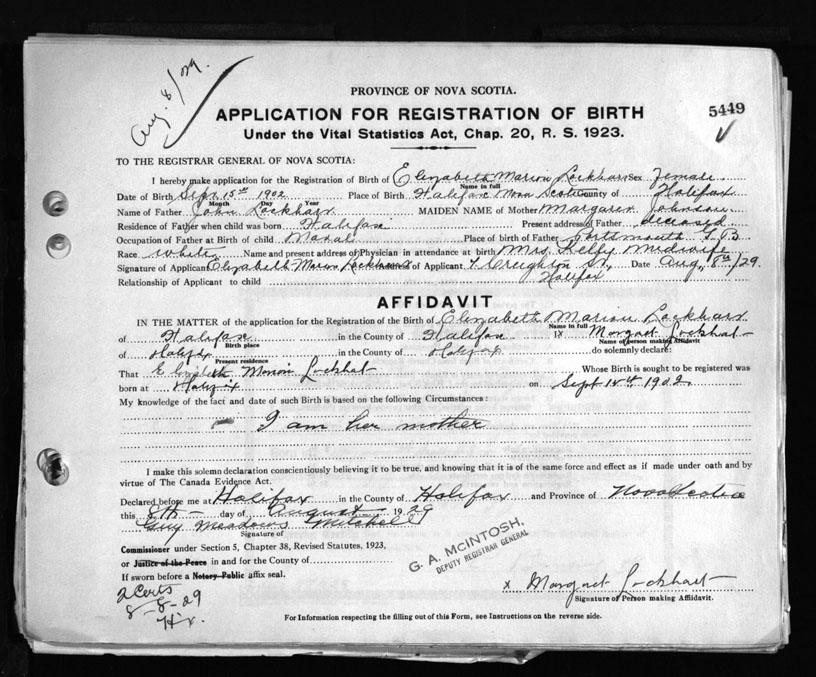 Aug. 8/29.
PROVINCE OF NOVA SCOTIA.
APPLICATION FOR REGISTRATION OF BIRTH
5449
Under the Vital Statistics Act, Chap. 20, R. S. 1923.
TO THE REGISTRAR GENERAL OF NOVA SCOTIA:
I hereby make application for the Registration of Birth of Elizabeth Marion Lockhart Sex Female
Name in full
Date of Birth Sept 15th 1902 Place of Birth Halifax Nova Scotia County of Halifax
Month Day Year
Name of Father John Lockhart MAIDEN NAME of Mother Margaret Johnson
Residence of Father when child was born Halifax Present address of Father deceased
Occupation of Father at Birth of child Naval Place of birth of Father Portsmouth G.B.
Race white Name and present address of Physician in attendance at birth Mrs. Kelly Midwife
Signature of Applicant Elizabeth Marion Lockhart of Applicant Creighton St, Date Aug. 8th/29.
Halifax
Relationship of Applicant to child
AFFIDAVIT
IN THE MATTER of the application for the Registration of the Birth of Elizabeth Marion Lockhart
Name in full
of Halifax in the County of Halifax I, Margaret Lockhart
Birth place Name of person making Affidavit
of Halifax in the County of Halifax do solemnly declare:
Present residence
That Elizabeth Marion Lockhart Whose Birth is sought to be registered was
born at Halifax on Sept 15th 1902
My knowledge of the fact and date of such Birth is based on the following Circumstances:
I am her mother
I make this solemn declaration conscientiously believing it to be true, and knowing that it is of the same force and effect as if made under oath and by
virtue of The Canada Evidence Act.
Declared before me at Halifax in the County of Halifax and Province of Nova Scotia
this 8th day of August 1929
Guy Meadows Mitchell
Signature of
Commissioner under Section 5, Chapter 38, Revised Statutes, 1923,
or Justice of the Peace in and for the County of
If sworn before a Notary Public affix seal.
G. A. McINTOSH,
DEPUTY REGISTRAR GENERAL
x Margaret Lockhart
Signature of Person making Affidavit.
2 Certs
8-8-29
Hx.
For Information respecting the filling out of this Form, see Instructions on the reverse side.